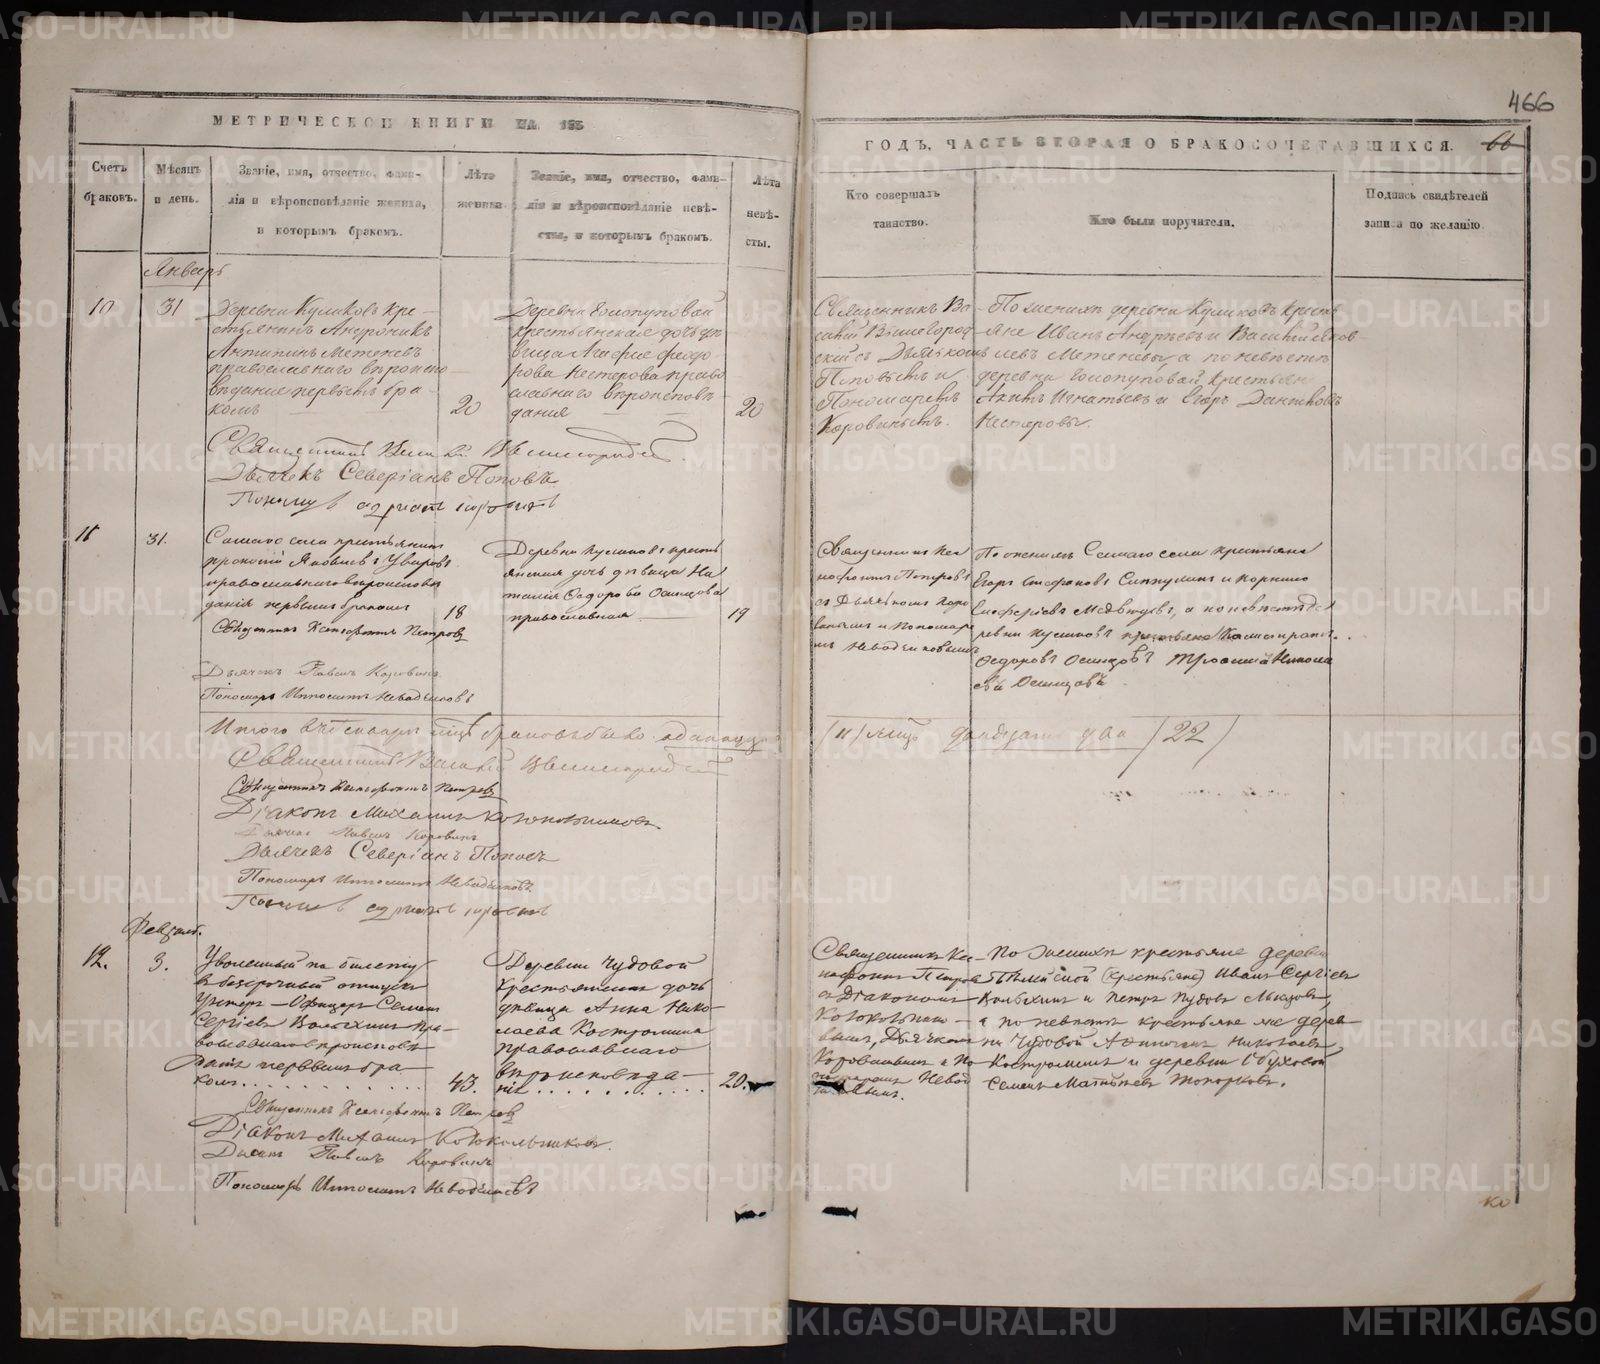 466
МЕТРИЧЕСКОЙ КНИГИ НА 185
ГОДЪ, ЧАСТЬ ВТОРАЯ О БРАКОСОЧЕТАВШИХСЯ.
66
Счетъ браковъ.
Мѣсяцъ и день.
Званіе, имя, отчество, фами-
лія и вѣроисповѣданіе жениха,
и которымъ бракомъ.
Лѣта жениха
Званіе, имя, отчество, фами-
лія и вѣроисповѣданіе невѣ-
сты, и которымъ бракомъ.
Лѣта невѣ-
сты.
Кто совершалъ
таинство.
Кто были поручители.
Подпись свидѣтелей
записи по желанію.
Январь
10
31
Деревни Куликовъ кре-
стьянинъ Андроникъ
Антипинъ Метеневъ
православнаго вѣроиспо-
вѣданія первымъ бра-
комъ
20
Деревни Голопуповой
крестьянская дочь дѣ-
вица Агафія Феодо-
рова Нестерова право
славнаго вѣроисповѣ-
данія
20
Священникъ Ва-
силій Вышегород-
скій съ Дьячкомъ
Поповымъ и
Пономаремъ
Коровинымъ.
По женихѣ деревни Куликовъ кресть
яне Иванъ Андреевъ и Василій Яков-
левъ Метеневы, а по невѣстѣ
деревни Голопуповой крестьяне
Игнатьевъ и Егоръ
Нестеровы.
Священникъ Василій Вышегородскій
Дьячекъ Северіанъ Поповъ
11
31.
Самаго села крестьянинъ
Прокопій Яковлевъ Уваровъ
православнаго вѣроисповѣ
данія первымъ бракомъ
18
Деревни Куликовъ кресть
янская дочь дѣвица На
талія Федорова Осинцова
православная
19
Священникъ Ксе
нофонтъ Петровъ
съ Дьячкомъ Коро
винымъ и Пономаре
мъ Неводчиковымъ
По женихѣ Самаго села крестьяне
Егоръ Стефановъ и Корнило
Медведевъ, а по невѣстѣ де
ревни Куликовъ крестьяне
Федоровъ Осинцовъ Трофимъ Никола
евъ Осинцовъ
Священникъ Ксенофонтъ Петровъ
Дьячекъ Павелъ Коровинъ
Пономарь Ипполитъ Неводчиковъ
Итого въ Генварѣ м҃цѣ браковъ было одинадцать
/11/ лицъ двадцать два /22/
Священникъ Василій Вышегородскій
Священникъ Ксенофонтъ Петровъ
Діаконъ Михаилъ Колокольниковъ
Дьячекъ Павелъ Коровинъ
Дьячекъ Северіанъ Поповъ
Пономарь Ипполитъ Неводчиковъ
Февраль.
12.
3.
Уволенный по билету
въ безсрочный отпускъ
Унтеръ-Офицеръ Семенъ
Сергіевъ Волыхинъ пра-
вославнаго вѣроисповѣ
данія первымъ бра-
комъ
43.
Деревни Чудовой
крестьянская дочь
дѣвица Анна Нико-
лаева Костромина
православнаго
вѣроисповѣда-
нія
20.
Священникъ Ксе-
нофонтъ Петровъ
съ Діакономъ
Колокольнико-
вымъ, Дьячкомъ
Коровинымъ и По-
номаремъ Неводчи-
ковымъ.
По женихѣ крестьяне деревни
(крестьяне) Иванъ Сергіевъ
Волыхинъ и Петръ
а по невѣстѣ крестьяне же дерев
ни Чудовой Николаевъ
Костроминъ и деревни Обуховой
Семенъ Матвѣевъ Топорковъ.
Священникъ Ксенофонтъ Петровъ
Діаконъ Михаилъ Колокольниковъ.
Дьячекъ Павелъ Коровинъ
Пономарь Ипполитъ Неводчиковъ
METRIKI.GASO-URAL.RU